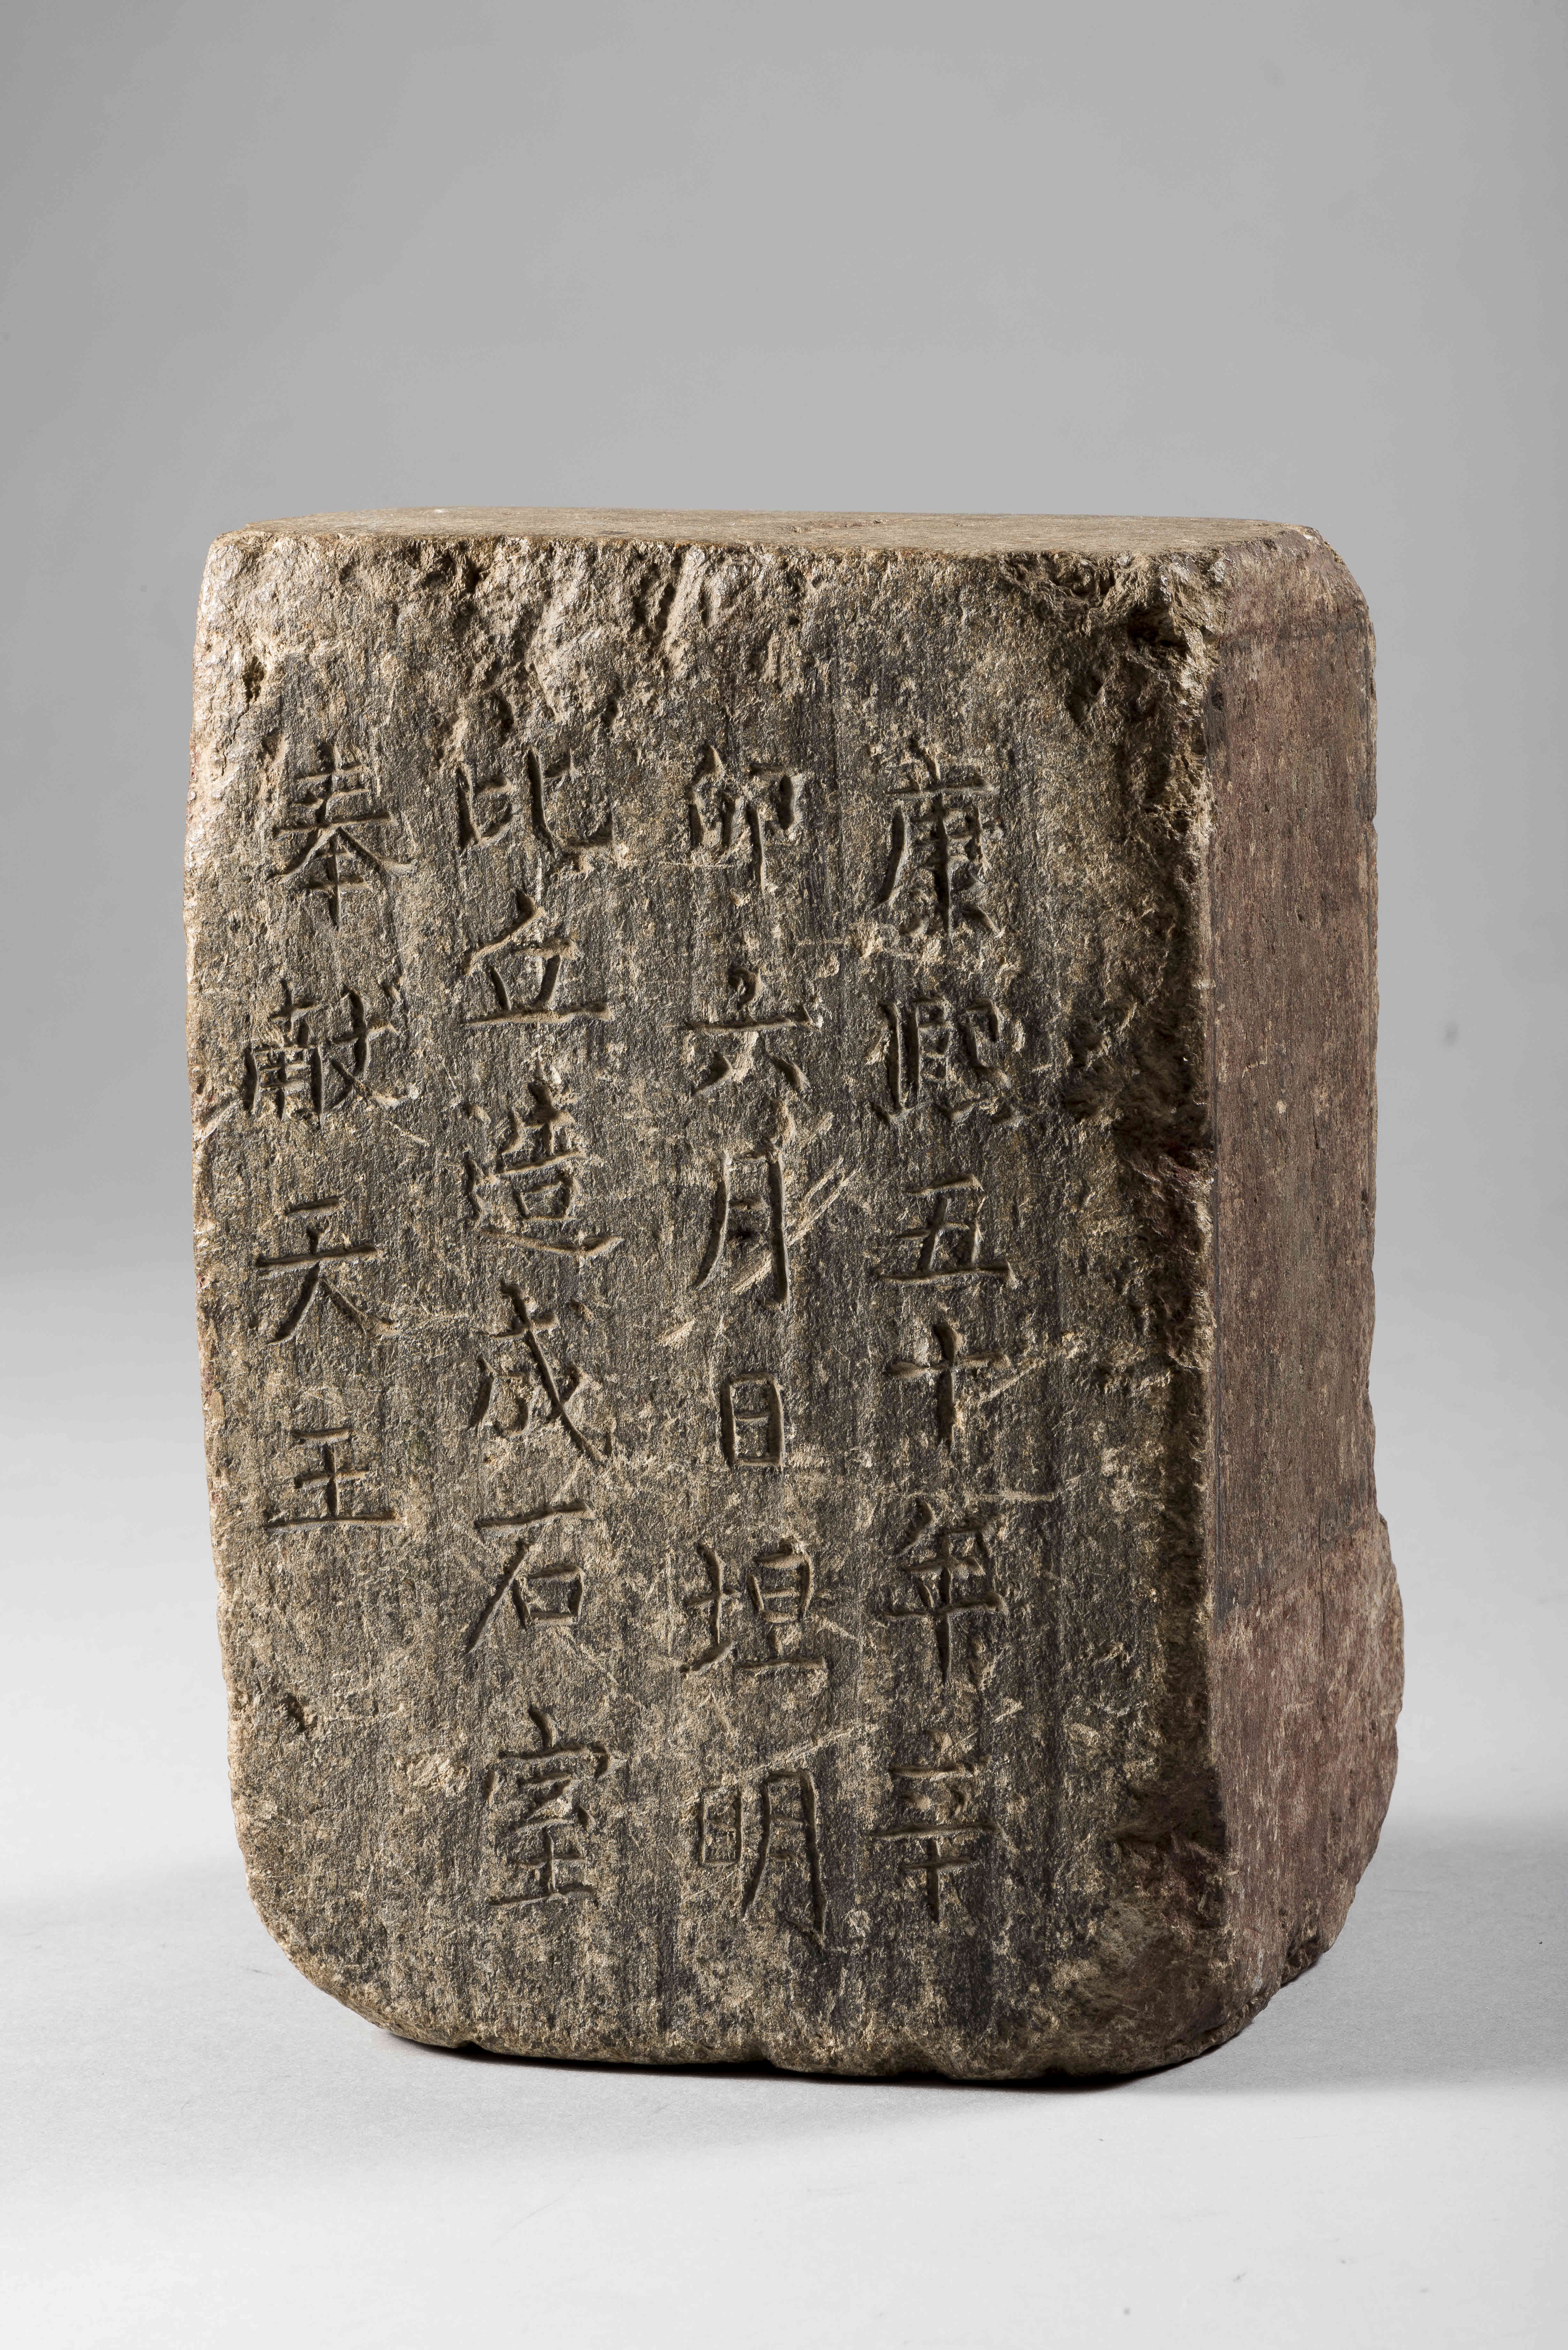 康熙五十年辛
卯六月日坦明
比丘造成石室
奉献天王